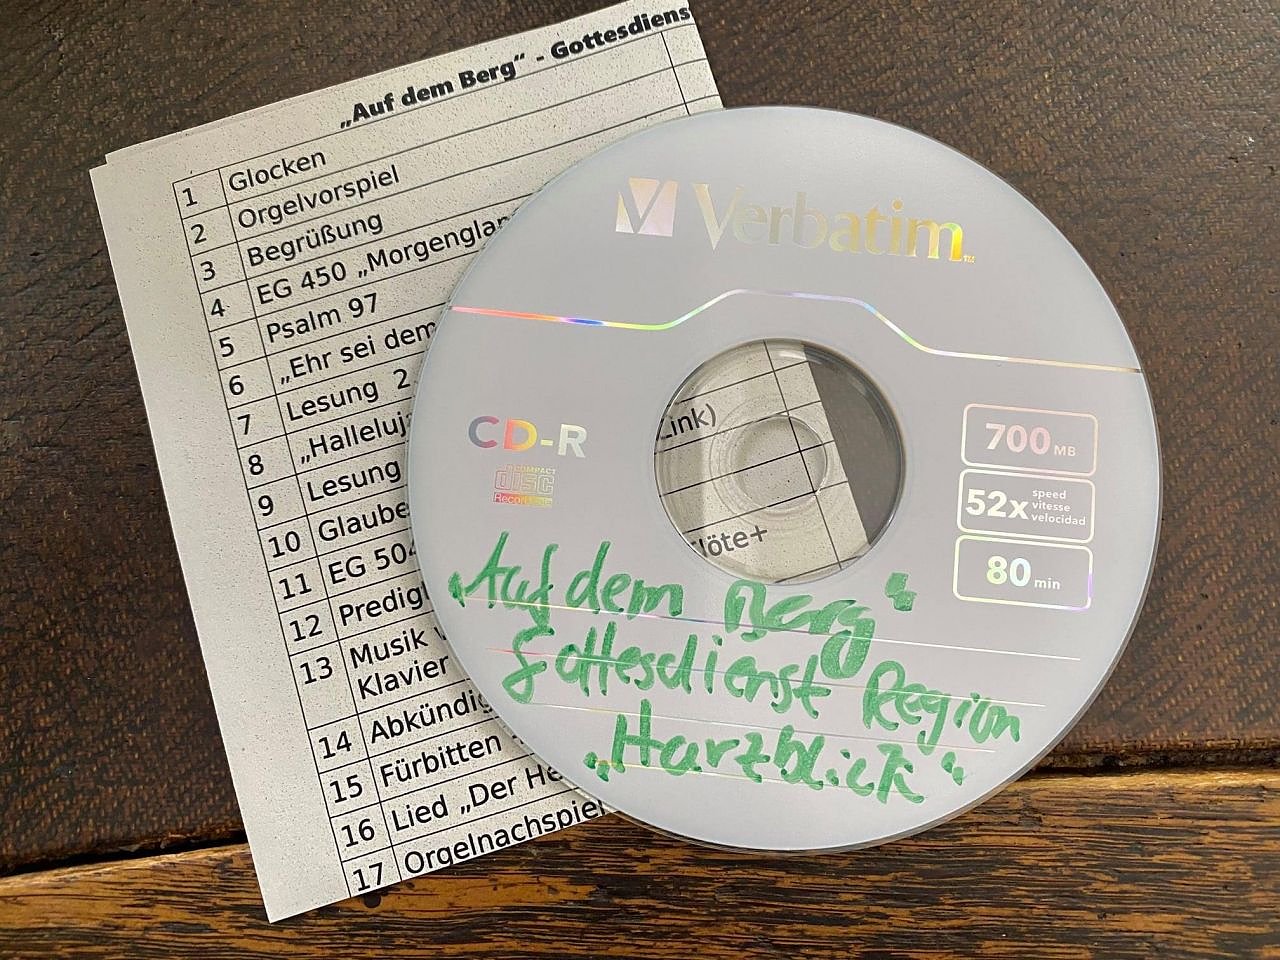 „Auf dem Berg“ - Gottesdiens
1 Glocken
2 Orgelvorspiel
3 Begrüßung
4 EG 450 „Morgenglan
5 Psalm 97
6 „Ehr sei dem
7 Lesung 2.
8 „Halleluja
9 Lesung
10 Glaube
11 EG 504
12 Predig
13 Musik
Klavier
14 Abkündig
15 Fürbitten
16 Lied „Der He
17 Orgelnachspiel
Link)
löte+
Verbatim™
CD-R
COMPACT
disc
Recordable
700 MB
52x speed
vitesse
velocidad
80 min
„Auf dem Berg“
Gottesdienst Region
„Harzblick“